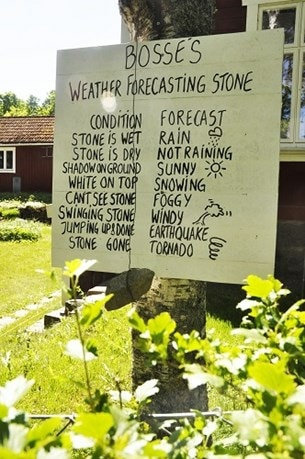 BOSSE'S
WEATHER FORECASTING STONE
CONDITION FORECAST
STONE IS WET RAIN
STONE IS DRY NOT RAINING
SHADOW ON GROUND SUNNY
WHITE ON TOP SNOWING
CANT SEE STONE FOGGY
SWINGING STONE WINDY
JUMPING UP&DONE EARTHQUAKE
STONE GONE TORNADO